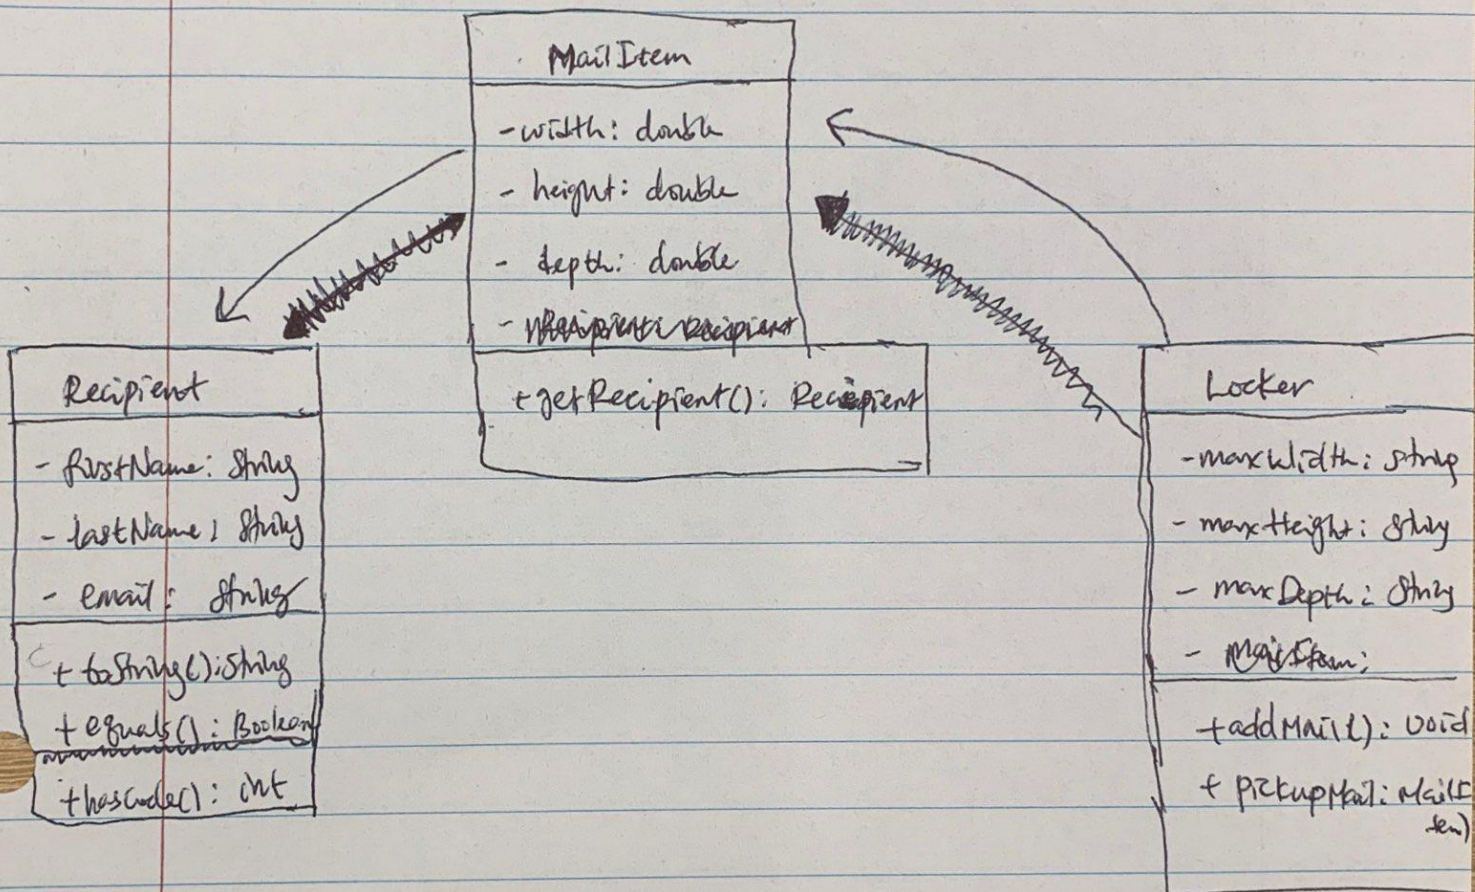 MailItem
-width: double
- height: double
- depth: double
+getRecipient(): Recipient
Recipient
- firstName: String
- lastName: String
- email: String
+ toString(): String
+ equals(): Boolean
+hascode(): int
Locker
-maxWidth: String
- maxHeight: String
- maxDepth: String
- MailItem:
+addMail(): void
+ pickupMail: MailI
tem)